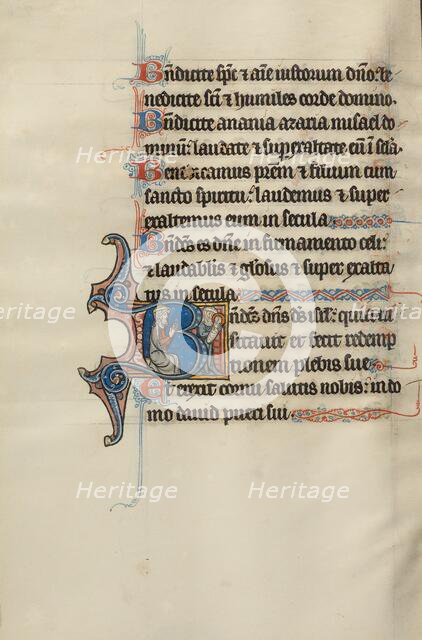 Bñdicite sp̄c ⁊ aīe iustorum dño: be
nedicite sc̄i ⁊ humiles corde domino.
Bñdicite anania azaria misael do
minū: laudate ⁊ superaltate eū ī sc̄la.
Benedicamus prem ⁊ filium cum
sancto spiritu: laudemus ⁊ super
exaltemus eum in secula
Bñdcs es dñe in firmamento celi:
⁊ laudabilis ⁊ glosus ⁊ super exalta
tus in secula
Bñdcs dñs ds isrl: quia ui
sitauit et fecit redemp
tionem plebis sue
Et erexit cornu salutis nobis: in do
mo dauid pueri sui
Heritage Heritage
Heritage Heritage Heritage
Heritage Heritage